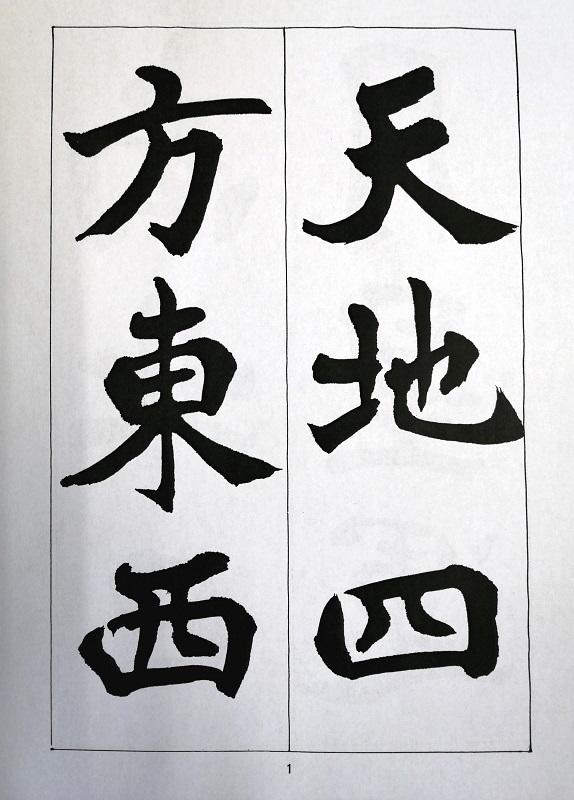 天地四
方東西
1